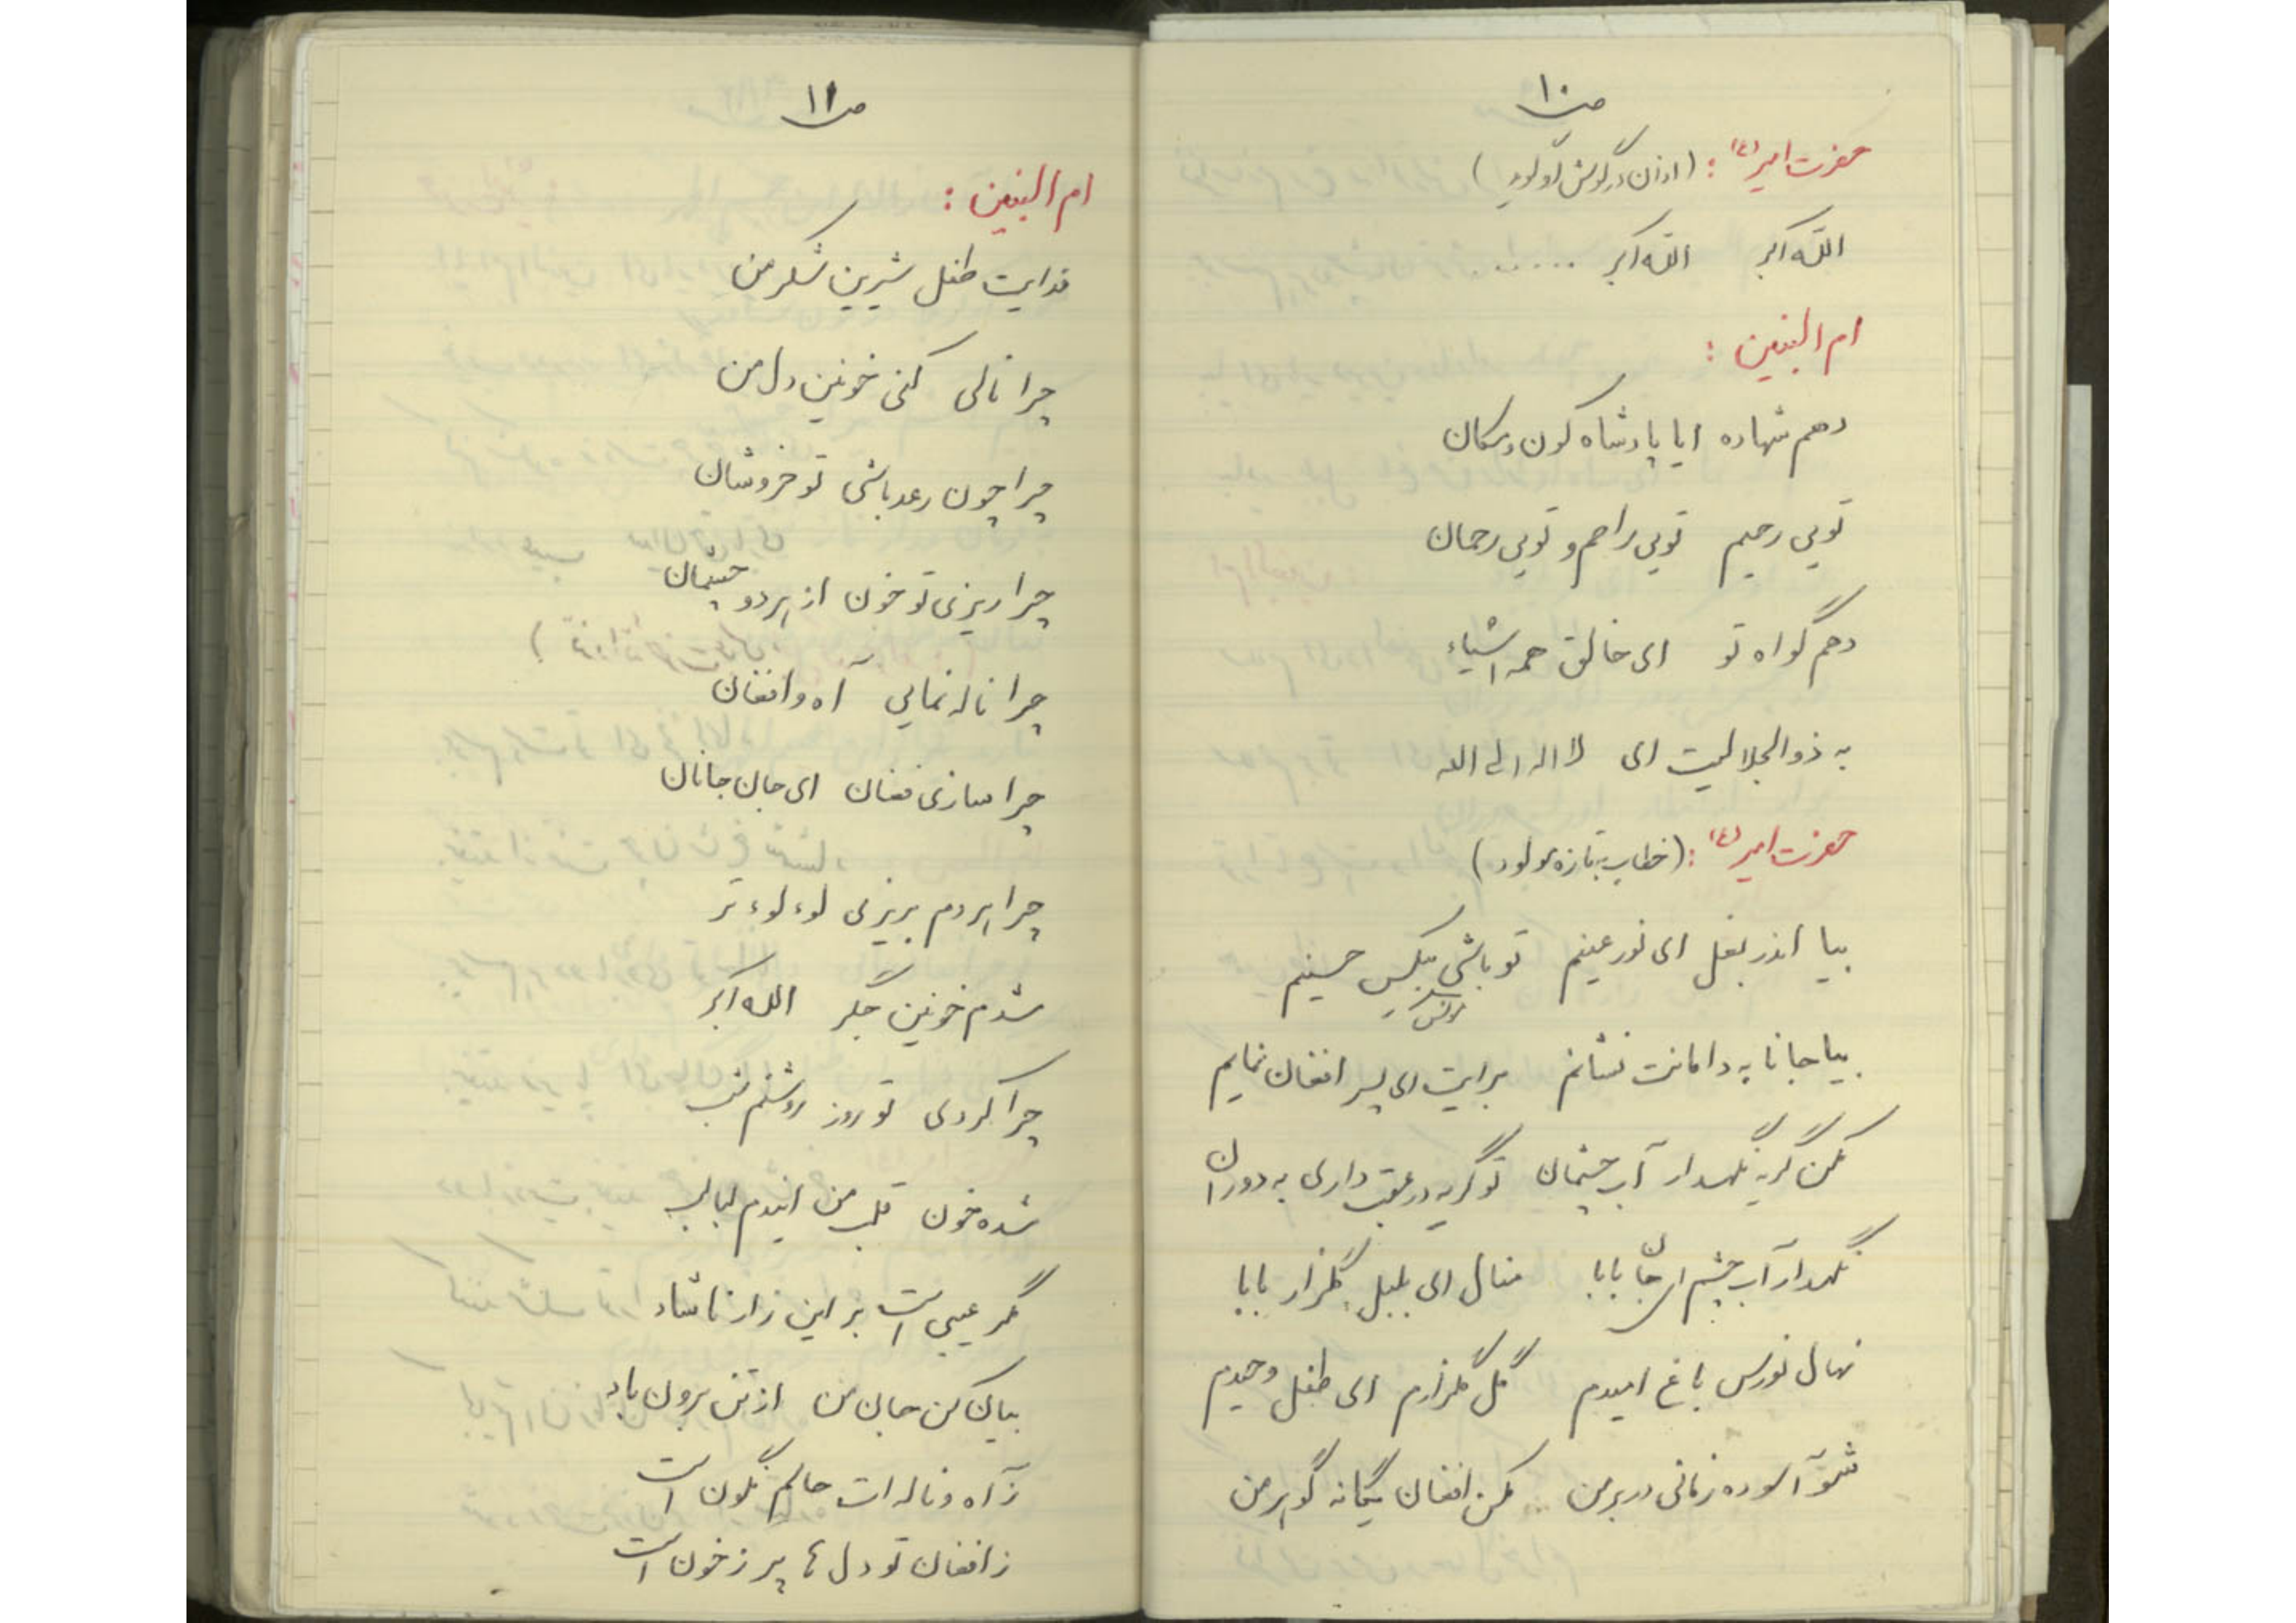 ص ۱۰
حضرت امیر (ع) : (اذان در گوش نو گوید)
الله اکبر الله اکبر .......
ام البنین :
دهم شهاده ایا پادشاه کون و مکان
تویی رحیم تویی راحم و تویی رحمان
دهم گواه تو ای خالق همه اشیاء
به ذوالجلالیت ای لا اله الی الله
حضرت امیر (ع) : (خطاب به تازه مولود)
بیا اندر بغل ای نور عینم تو باشی بیکس حسینم
مونس
بیا جانا به دامانت نشانم برایت ای پسر افغان نمایم
مکن گریه نگهدار آب چشمان تو گریه در عقب داری به دوران
نگهدار آب چشم ای جان بابا منال ای بلبل گلزار بابا
نهال نورس باغ امیدم گل گلزارم ای طفل وحیدم
شو آسوده زمانی در بر من مکن افغان یگانه گوهر من
ص ۱۱
ام البنین :
فدایت طفل شیرین شکر من
چرا نالی کنی خونین دل من
چرا چون رعد باشی تو خروشان
چرا ریزی تو خون از هر دو چشمان
چرا ناله نمایی آه و افغان
چرا سازی فغان ای جان جانان
چرا هر دم بریزی لوء لوء تر
شدم خونین جگر الله اکبر
چرا کردی تو روز روشنم شب
شده خون قلب من ایندم لبالب
مگر عیبی است بر این زار ناشاد
بیان کن جان من از تن برون باد
ز آه و ناله ات حالم نگون است
ز افغان تو دل ها پر ز خون است